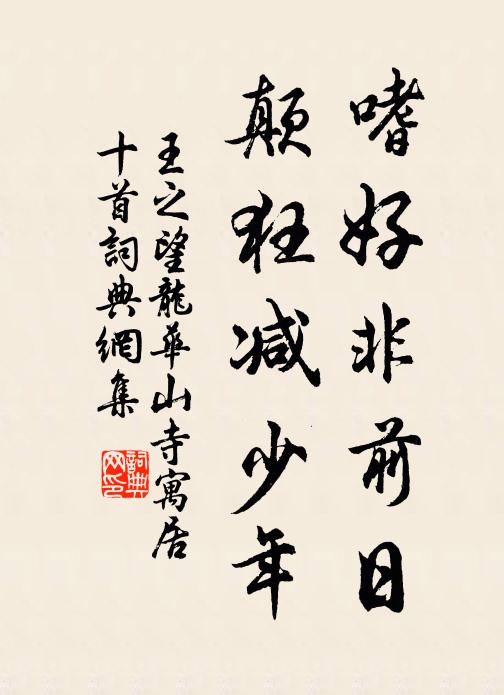 嗜好非前日
顛狂減少年
王之望龍華山寺寓居
十首詞典網集
詞典
网印